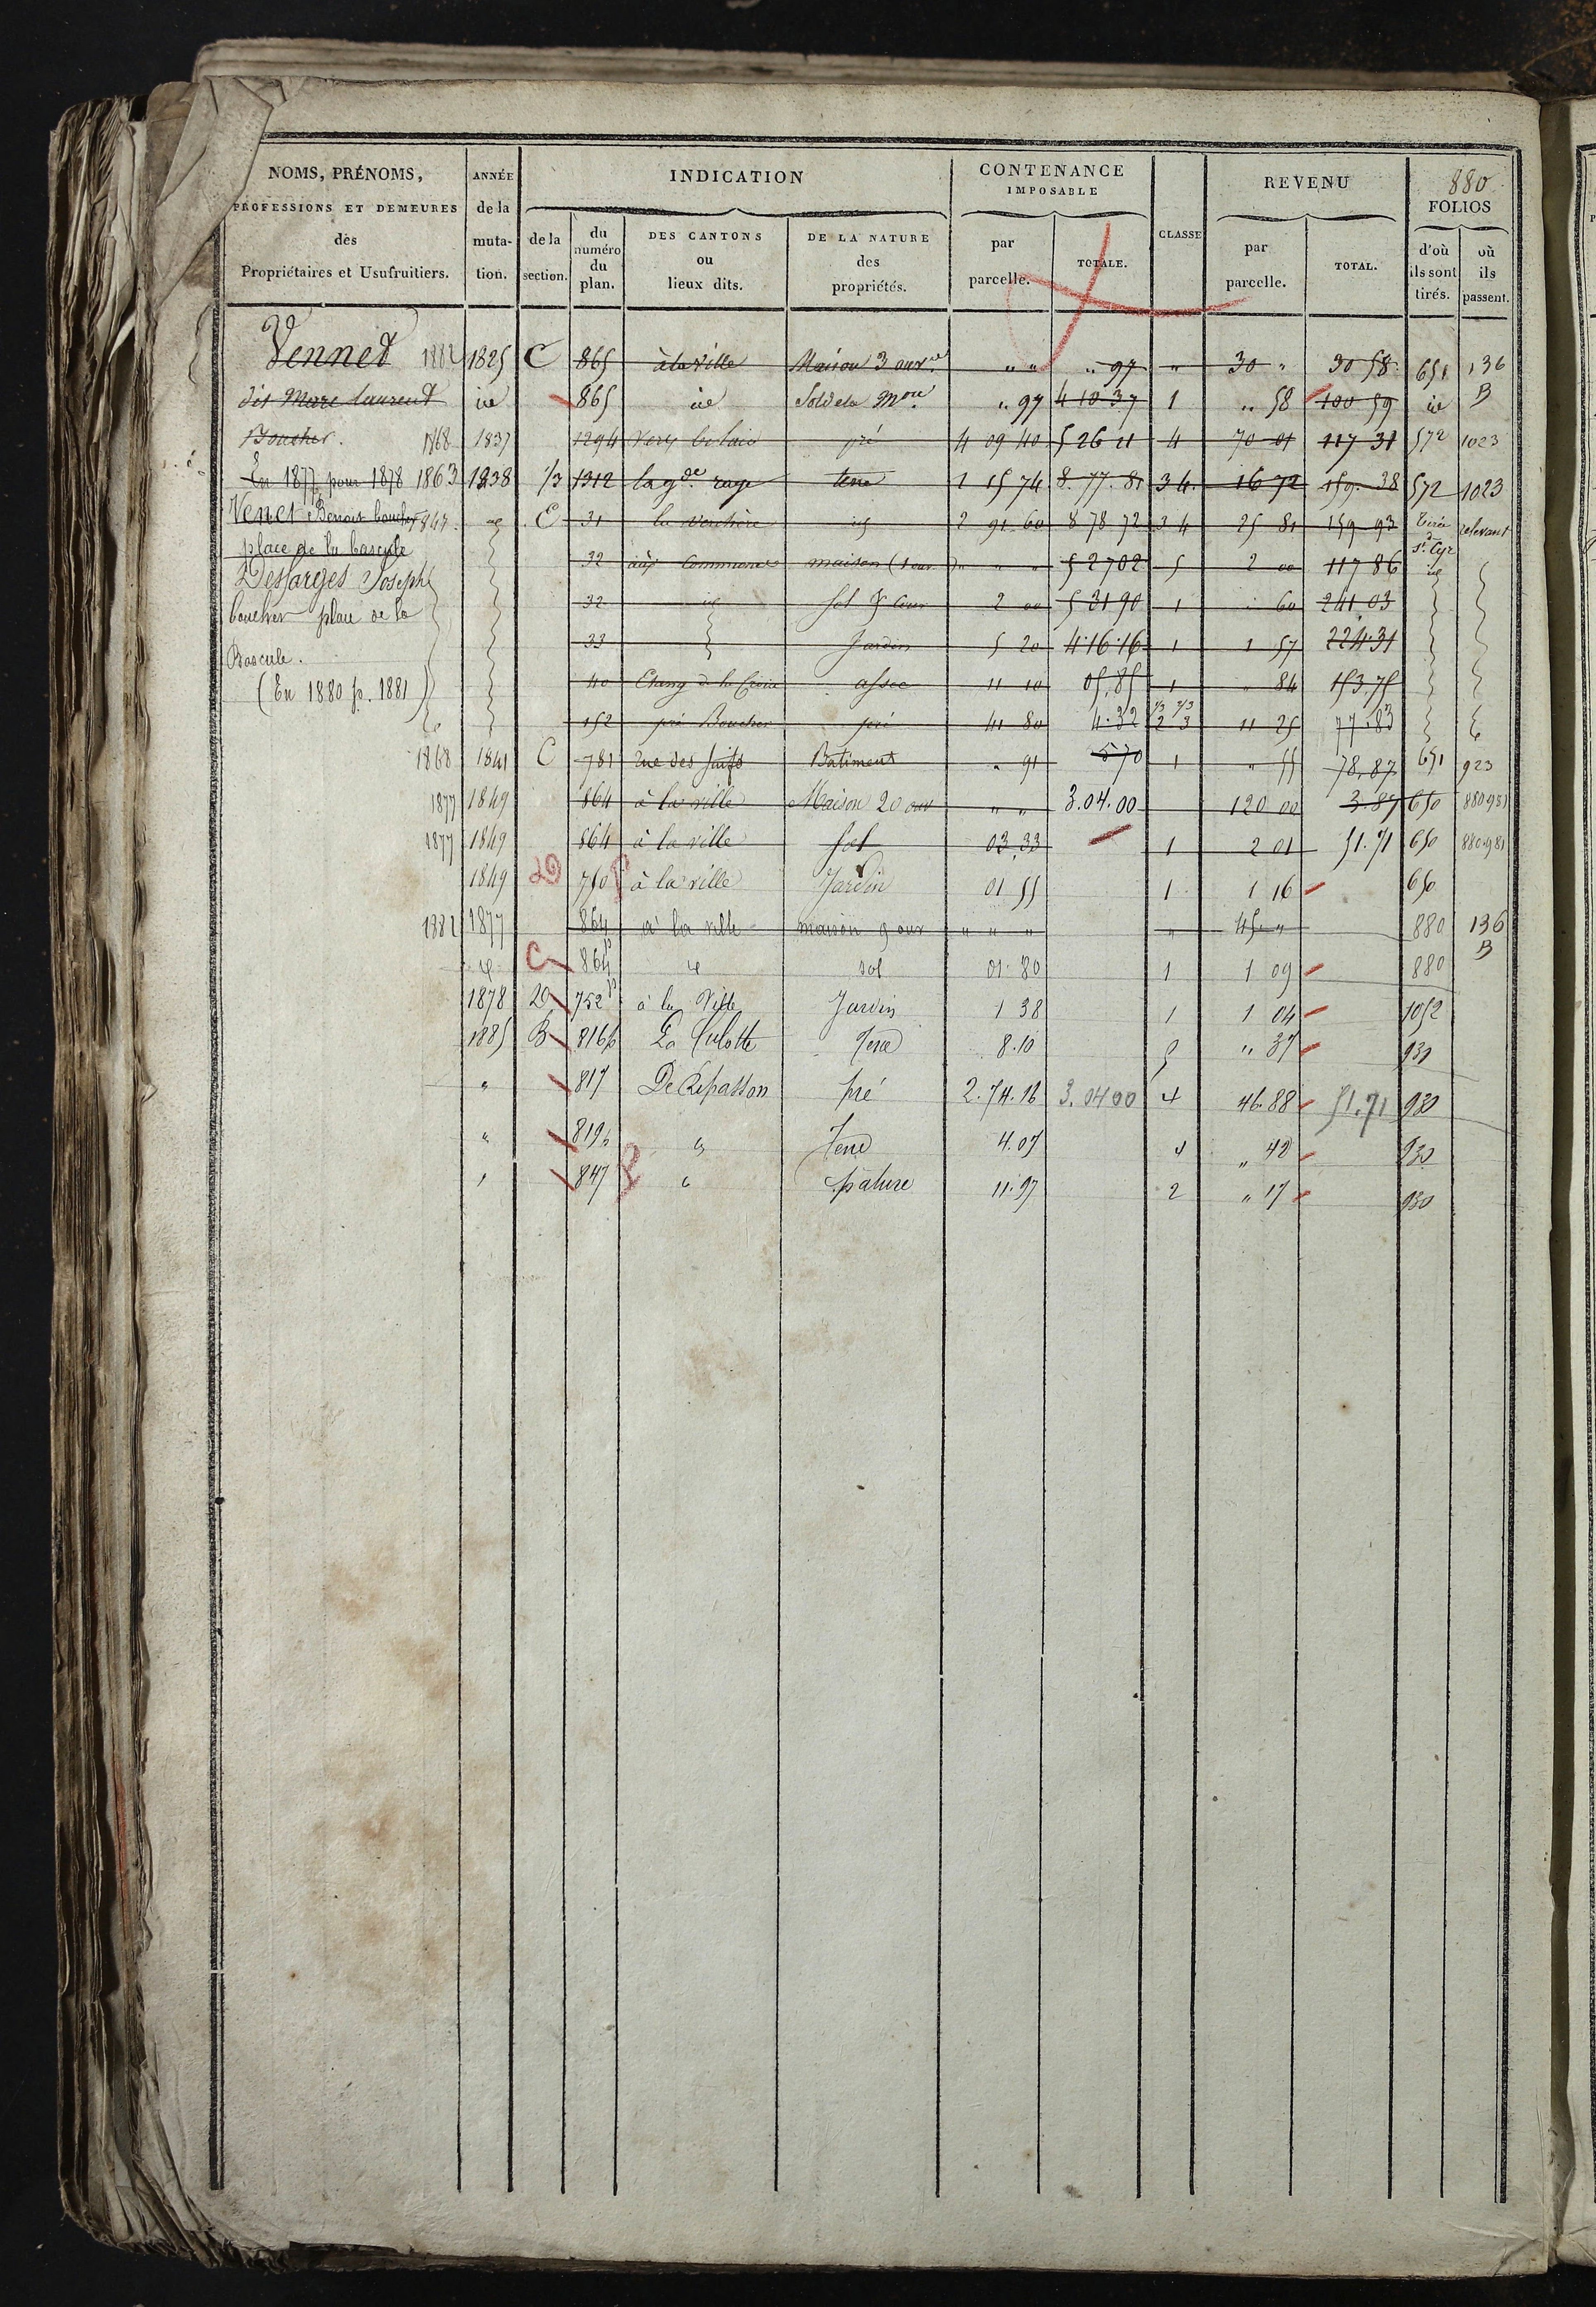 880
NOMS, PRÉNOMS, PROFESSIONS ET DEMEURES des Propriétaires et Usufruitiers.
ANNÉE de la mutation.
INDICATION
de la section.
du numéro du plan.
DES CANTONS ou lieux dits.
DE LA NATURE des propriétés.
CONTENANCE IMPOSABLE
par parcelle.
TOTALE.
CLASSE
REVENU
par parcelle.
TOTAL.
FOLIOS
d'où ils sont tirés.
où ils passent.
Vennet 1882 1825 C 865 à la Ville Maison 3 ouv.re " " " 97 " 30 " 30 58 651 136 B
dit Marc Laurent id 865 id Sol de la Mon " 97 4 10 37 1 " 58 100 59 id
Boucher. 1868 1837 1294 pré 4 09 40 5 26 11 4 70 01 117 31 572 1023
En 1877 pour 1878 1863 1838 1/3 1312 la gde raye terre 1 15 74 8.77.81 3 4 16 72 159.38 572 1023
Venet Benoit boucher C 31 la verchère id 2 91 60 8 78 72 3 4 25 81 159 93 Tirée de St Cyr relevant
place de la bascule 32 aux Communes maison (1 ouv " " " 5 27 02 5 2 00 117 86 id
Desfarges Joseph 32 id sol & cour 2 00 5 31 90 1 " 60 241 03
boucher place de la 33 Jardin 5 20 4.16.16 1 1 57 224.31
Bascule. 40 Etang de la Croix assec 11 10 05,85 1 " 84 153.75
(En 1880 p. 1881) 152 pré Boucher pré 41 80 4.32 1/3 2/3 2 3 11 25 77.83
1868 1841 C 781 rue des Juifs Batiment " 91 570 1 " 55 78,87 651 923
1877 1849 864 à la ville Maison 20 ouv " " 3.04.00 120 00 3.87 650 880 981
1877 1849 864 à la ville Sol 03,33 1 2 01 51.71 650 880 981
1849 D 750 p à la ville Jardin 01 55 1 1 16 650
1882 1877 864 à la ville maison 9 ouv " " " " 45 " 880 136 B
id C 864 p id sol 01.80 1 1 09 880
1878 D 752 p à la Ville Jardin 1 38 1 1 04 1052
1885 B 816 p La Culotte Terre 8.10 5 " 37 930
" 817 De Répasson pré 2.74.16 3.0400 4 46.88 51.71 930
" 819 p " Terre 4.05 4 " 42 930
" 847 p " pature 11.97 2 " 17 930